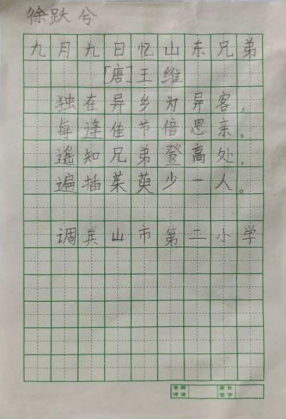 徐跃兮
九月九日忆山东兄弟
[唐]王维
独在异乡为异客，
每逢佳节倍思亲。
遥知兄弟登高处，
遍插茱萸少一人。
调兵山市第二小学